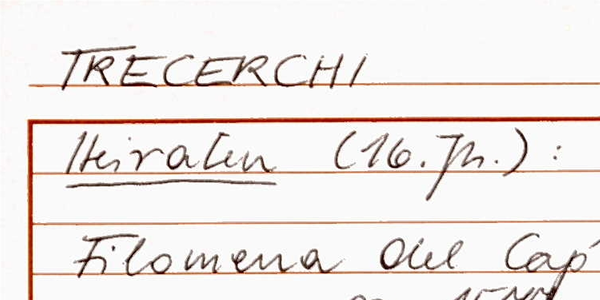 TRECERCHI
Heiraten (16. Jh.):
Filomena del Cap